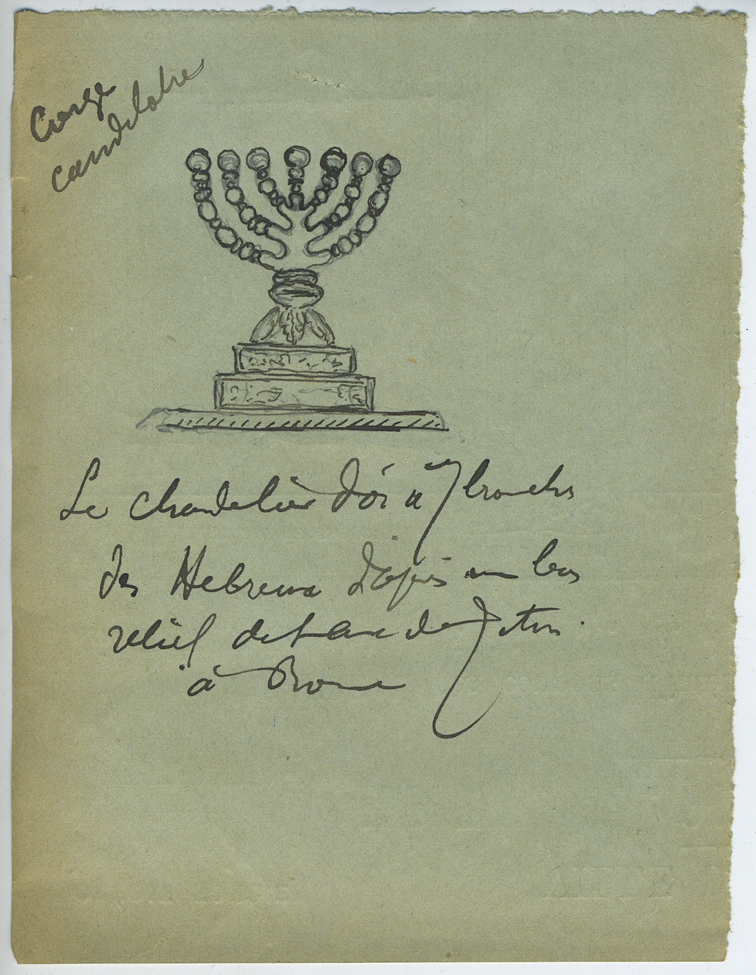 Cierge
candelabre
Le chandelier d'or à 7 branches
des Hebreux d'après un bas
relief de l'arc de Titus
à Rome